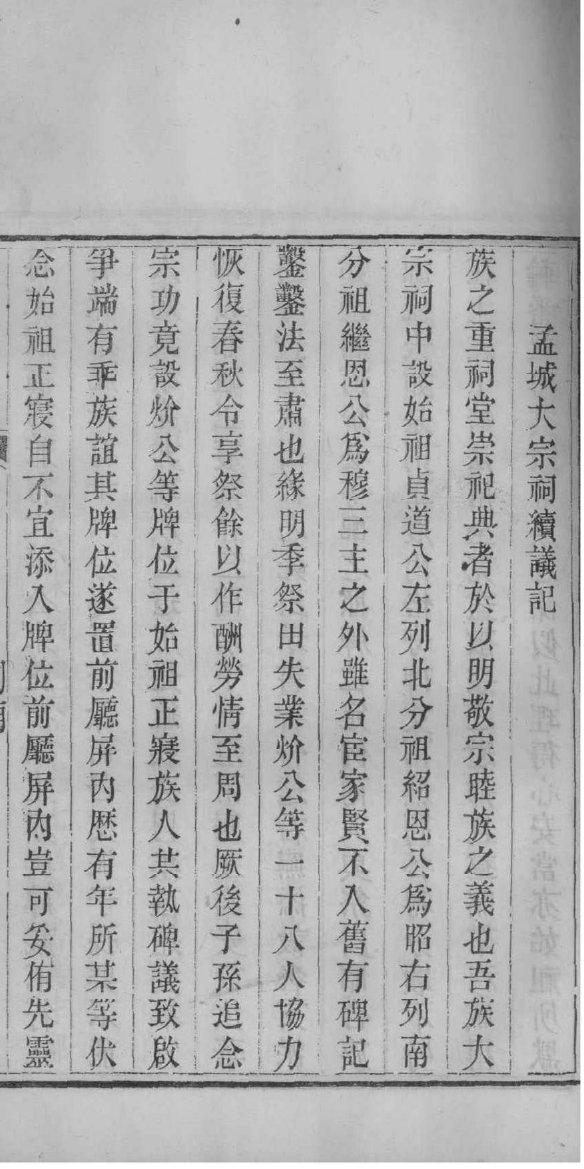 孟城大宗祠續議記
族之重祠堂崇祀典者於以明敬宗睦族之義也吾族大
宗祠中設始祖貞道公左列北分祖紹恩公爲昭右列南
分祖繼恩公爲穆三主之外雖名宦家賢不入舊有碑記
鑿鑿法至肅也緣明季祭田失業炌公等一十八人協力
恢復春秋令享祭餘以作酬勞情至周也厥後子孫追念
宗功竟設炌公等牌位于始祖正寢族人共執碑議致啟
爭端有乖族誼其牌位遂置前廳屏內歷有年所某等伏
念始祖正寢自不宜添入牌位前廳屏內豈可妥侑先靈